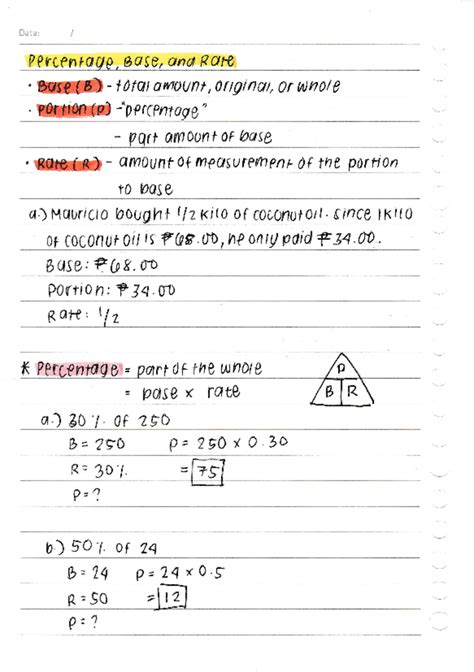 Date: /
Percentage, Base, and Rate
• Base (B) - total amount, original, or whole
• Portion (P) - "percentage"
- part amount of base
• Rate (R) - amount of measurement of the portion
to base
a.) Mauricio bought 1/2 kilo of coconut oil. Since 1 kilo
of coconut oil is ₱68.00, he only paid ₱34.00.
Base: ₱68.00
Portion: ₱34.00
Rate: 1/2
* Percentage = part of the whole
= base x rate
P
B R
a.) 30% of 250
B = 250 P = 250 x 0.30
R = 30% = 75
P = ?
b.) 50% of 24
B = 24 P = 24 x 0.5
R = 50 = 12
P = ?